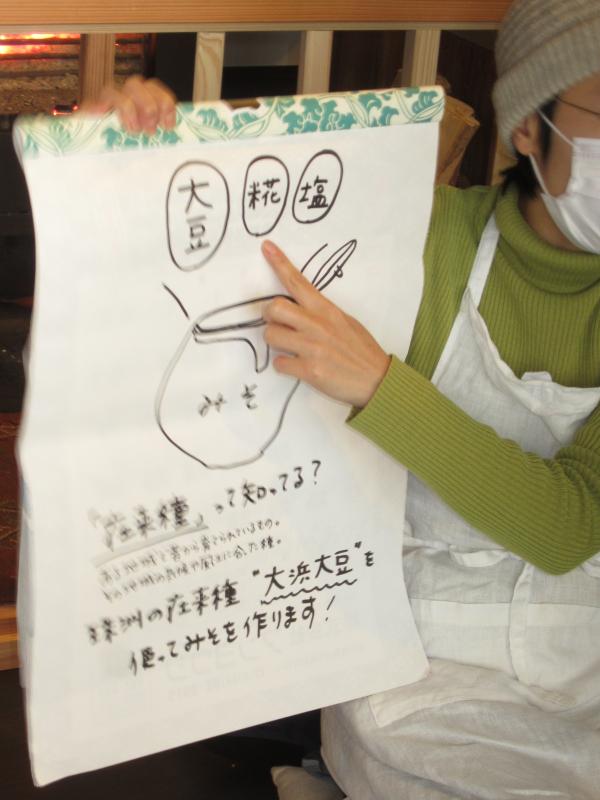 大豆 糀 塩
みそ
「在来種」って知ってる?
ある地域で昔から育てられているもの。
その地域の気候や風土に合った種。
珠洲の在来種 "大浜大豆"を
使ってみそを作ります!